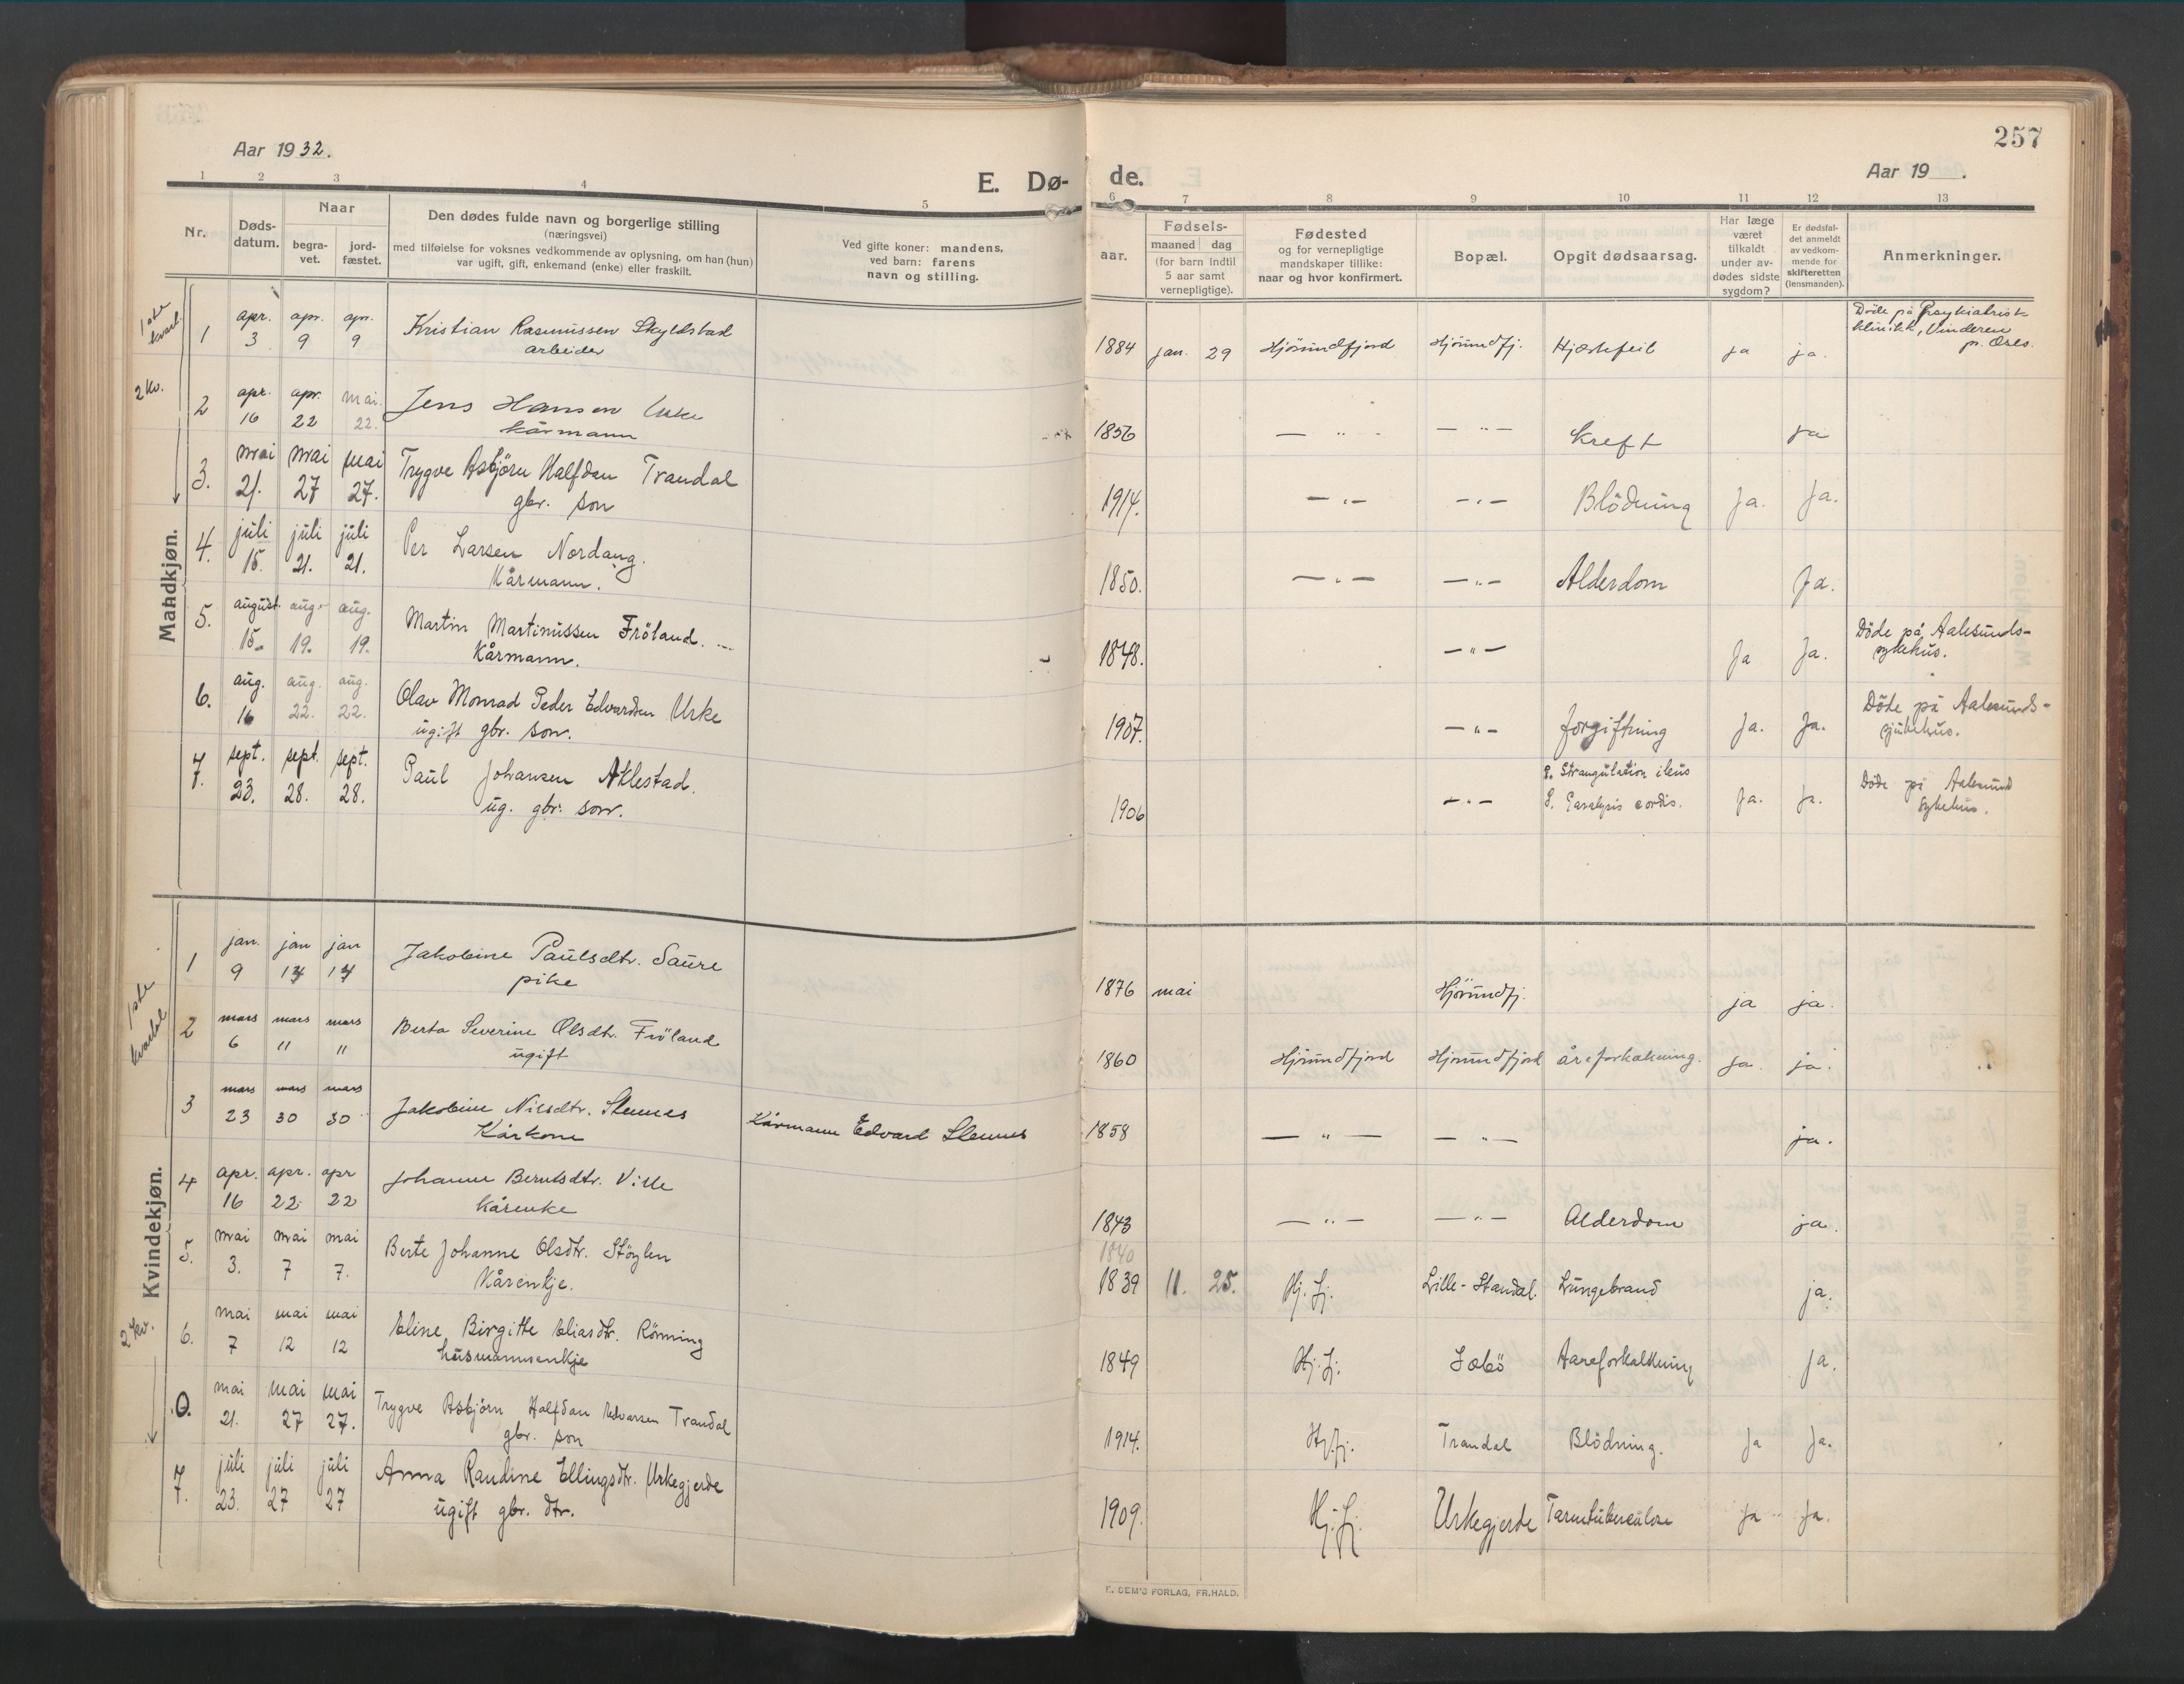 257
Aar 1932.
Aar 19 .
E. Dø- de.
1 2 3 4 5 6 7 8 9 10 11 12 13
Nr.
Døds-
datum.
Naar
begra-
vet.
jord-
fæstet.
Den dødes fulde navn og borgerlige stilling
(næringsvei)
med tilføielse for voksnes vedkommende av oplysning, om han (hun)
var ugift, gift, enkemand (enke) eller fraskilt.
Ved gifte koner: mandens,
ved barn: farens
navn og stilling.
aar.
Fødsels-
maaned dag
(for barn indtil
5 aar samt
vernepligtige).
Fødested
og for vernepligtige
mandskaper tillike:
naar og hvor konfirmert.
Bopæl.
Opgit dødsaarsag.
Har læge
været
tilkaldt
under av-
dødes sidste
sygdom?
Er dødsfal-
det anmeldt
av vedkom-
mende for
skifteretten
(lensmanden).
Anmerkninger.
Mandkjøn.
1ste
kvart.
1 apr. apr. apr. Kristian Rasmussen Skylstad
3 9 9 arbeider
1884 jan. 29 Hjörundfjord Hjörundfj. Hjertefeil ja ja.
Döde på Psykiatrisk
klinikk, Vinderen
pr. Oslo.
2 kv.
2 apr. apr. mai. Jens Hansen Urke
16 22 22. kårmann
1856 — " - — " — Kreft ja
3. mai mai mai Trygve Asbjörn Halfdan Trandal
21. 27 27. gbr. son
1914. — " — — " — Blödning Ja. Ja.
4. juli juli juli Per Larsen Nordang.
15. 21. 21. Kårmann.
1850. — " — — " — Alderdom Ja.
5. august. aug. aug. Martin Martinussen Fröland.
15. 19. 19. Kårmann.
1848. — " — Ja Ja.
Döde på Aalesunds-
sykehus.
6. aug. aug. aug. Olav Monrad Peder Edvardsen Urke
16 22. 22. ugift gbr. son.
1907. — " — forgiftning Ja. Ja.
Döde på Aalesunds-
sjukehus.
7. sept. sept. sept. Paul Johansen Aklestad.
23. 28. 28. ug. gbr. son.
1906 — " — Strangulation ileus
Paralysis cordis. Ja. Ja.
Döde på Aalesund
sykehus.
Kvindekjøn.
1ste
kvartal
1 jan. jan jan Jakobine Paulsdtr. Saure
9 14 14 pike
1876 mai Hjörundfj. ja ja.
2 mars mars mars Berta Severine Olsdtr. Fröland
6 11 11 ugift
1860 Hjörundfjord Hjörundfjord åreforkalkning. ja. ja.
3 mars mars mars Jakobine Nilsdtr. Slennes
23 30 30 Kårkone
Kårmann Edvard Slennes
1858 — " — — " — ja.
4 apr. apr. apr Johanne Berntsdtr. Ville
16 22 22 kårenke
1843 — " — — " — Alderdom ja.
5. mai mai mai Berte Johanne Olsdtr. Stöylen
3. 7 7. Kårenkje.
1840
1839 11. 25. Hj.fj. Lille-Standal. Lungebrand ja.
2 kv.
6. mai mai mai Eline Birgitte Eliasdtr. Rönning
7 12 12 husmannsenkje
1849 Hj.fj. Säbö Aareforkalkning Ja.
0. mai mai mai Trygve Asbjörn Halfdan Edvarsen Trandal
21. 27 27. gbr. son
1914. Hj.fj. Trandal Blödning. Ja Ja.
7. juli juli juli Anna Randine Ellingsdtr. Urkegjerde
23. 27 27 ugift gbr. dtr.
1909. Hj.fj. Urkegjerde Tarmtuberculose Ja Ja.
E. SEM'S FORLAG, FR.HALD.